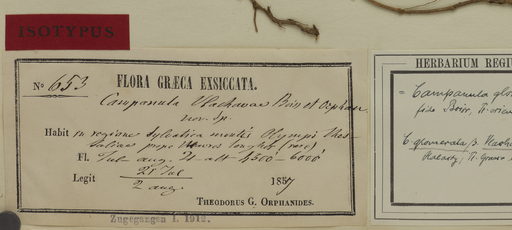 ISOTYPUS
No 653 FLORA GRÆCA EXSICCATA.
Campanula Vlachicae Boiss et Orphan
nov. sp.
Habit in regione sylvatica montis Olympi Thes-
saliae prope (raro) alt 4500'-6000'
Fl. Jul. aug. 2t alt 4500'-6000'
25 Jul
Legit 2 aug. 1857
THEODORUS G. ORPHANIDES.
Zugegangen i. 1912.
HERBARIUM REGI
= Campanula glo
fide Boiss, Fl. orien
C. glomerata β.
Halácsy, Fl. Graeca